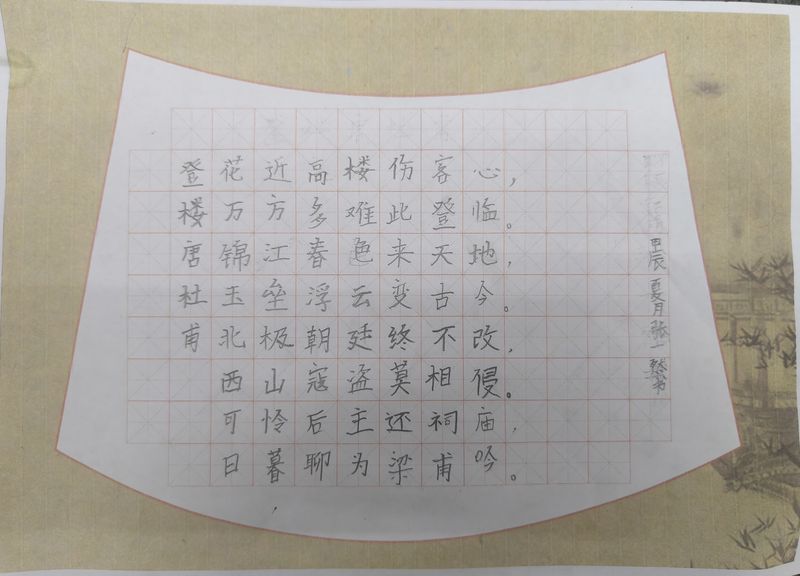 登楼唐杜甫
花近高楼伤客心，
万方多难此登临。
锦江春色来天地，
玉垒浮云变古今。
北极朝廷终不改，
西山寇盗莫相侵。
可怜后主还祠庙，
日暮聊为梁甫吟。
甲辰夏月张一